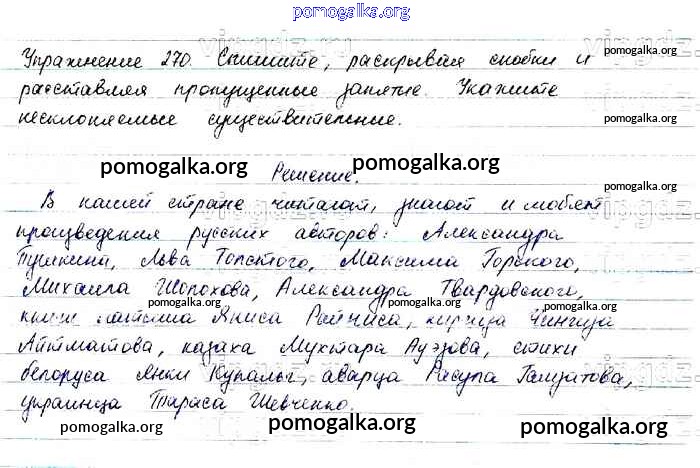 pomogalka.org
Упражнение 270. Спишите, раскрывая скобки и
pomogalka.org
расставляя пропущенные запятые. Укажите
несклоняемые существительные.
pomogalka.org
pomogalka.org
pomogalka.org
Решение.
В нашей стране читают, знают и любят
произведения русских авторов: Александра
pomogalka.org
Пушкина, Льва Толстого, Максима Горького,
Михаила Шолохова, Александра Твардовского,
pomogalka.org
pomogalka.org
латыша Яниса Райниса, киргиза Чингиза
Айтматова, казаха Мухтара Ауэзова, стихи
белоруса Янки Купалы, аварца Расула Гамзатова,
украинца Тараса Шевченко.
pomogalka.org
pomogalka.org
pomogalka.org